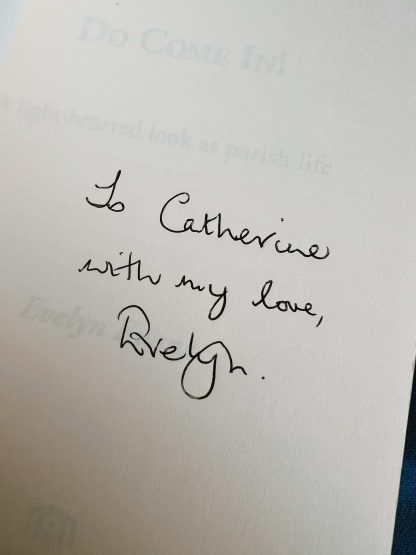 Do Come In!
A light-hearted look at parish life
To Catherine
with my love,
Evelyn.
Evelyn